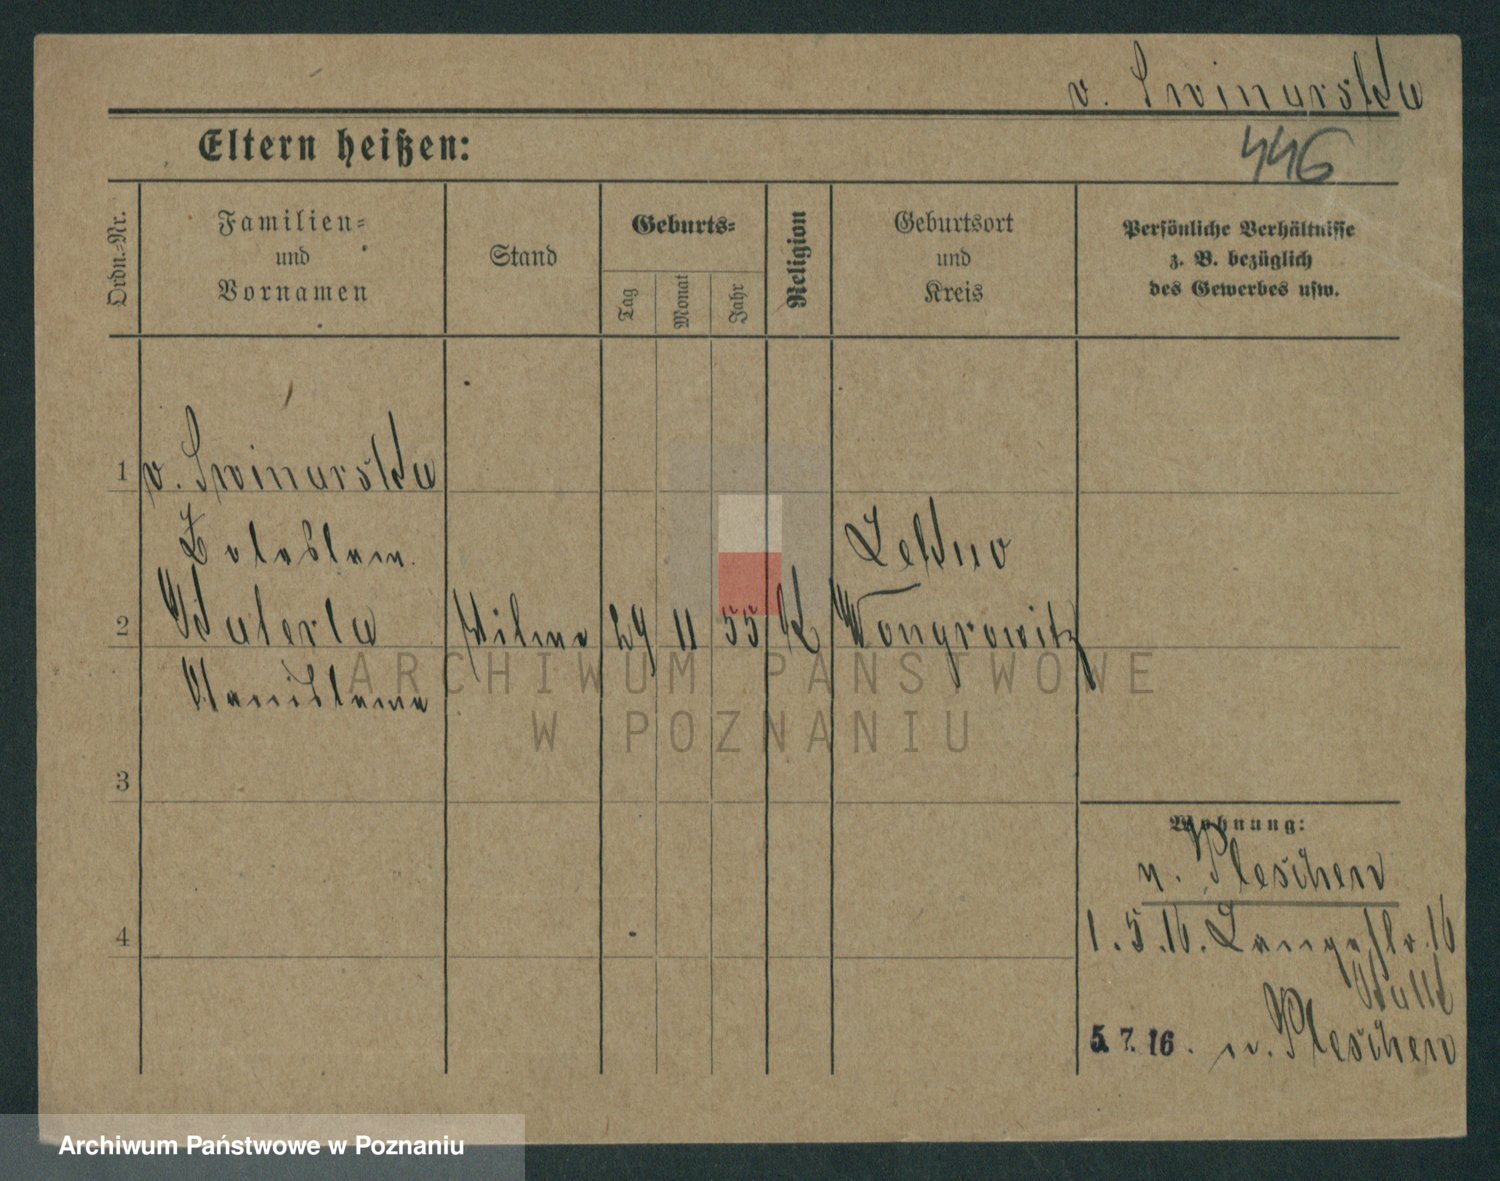 v. Swinarska
446
Eltern heißen:
Ordn.-Nr.
Familien-
und
Vornamen
Stand
Geburts-
Tag
Monat
Jahr
Religion
Geburtsort
und
Kreis
Persönliche Verhältnisse
z. B. bezüglich
des Gewerbes usw.
1 v. Swinarska
2 Valeria 29 11 55 K Wongrowitz
3
Wohnung:
n. Pleschen
4
1.5.16. Langestr. 16
5.7.16. n. Pleschen
ARCHIWUM PAŃSTWOWE
W POZNANIU
Archiwum Państwowe w Poznaniu